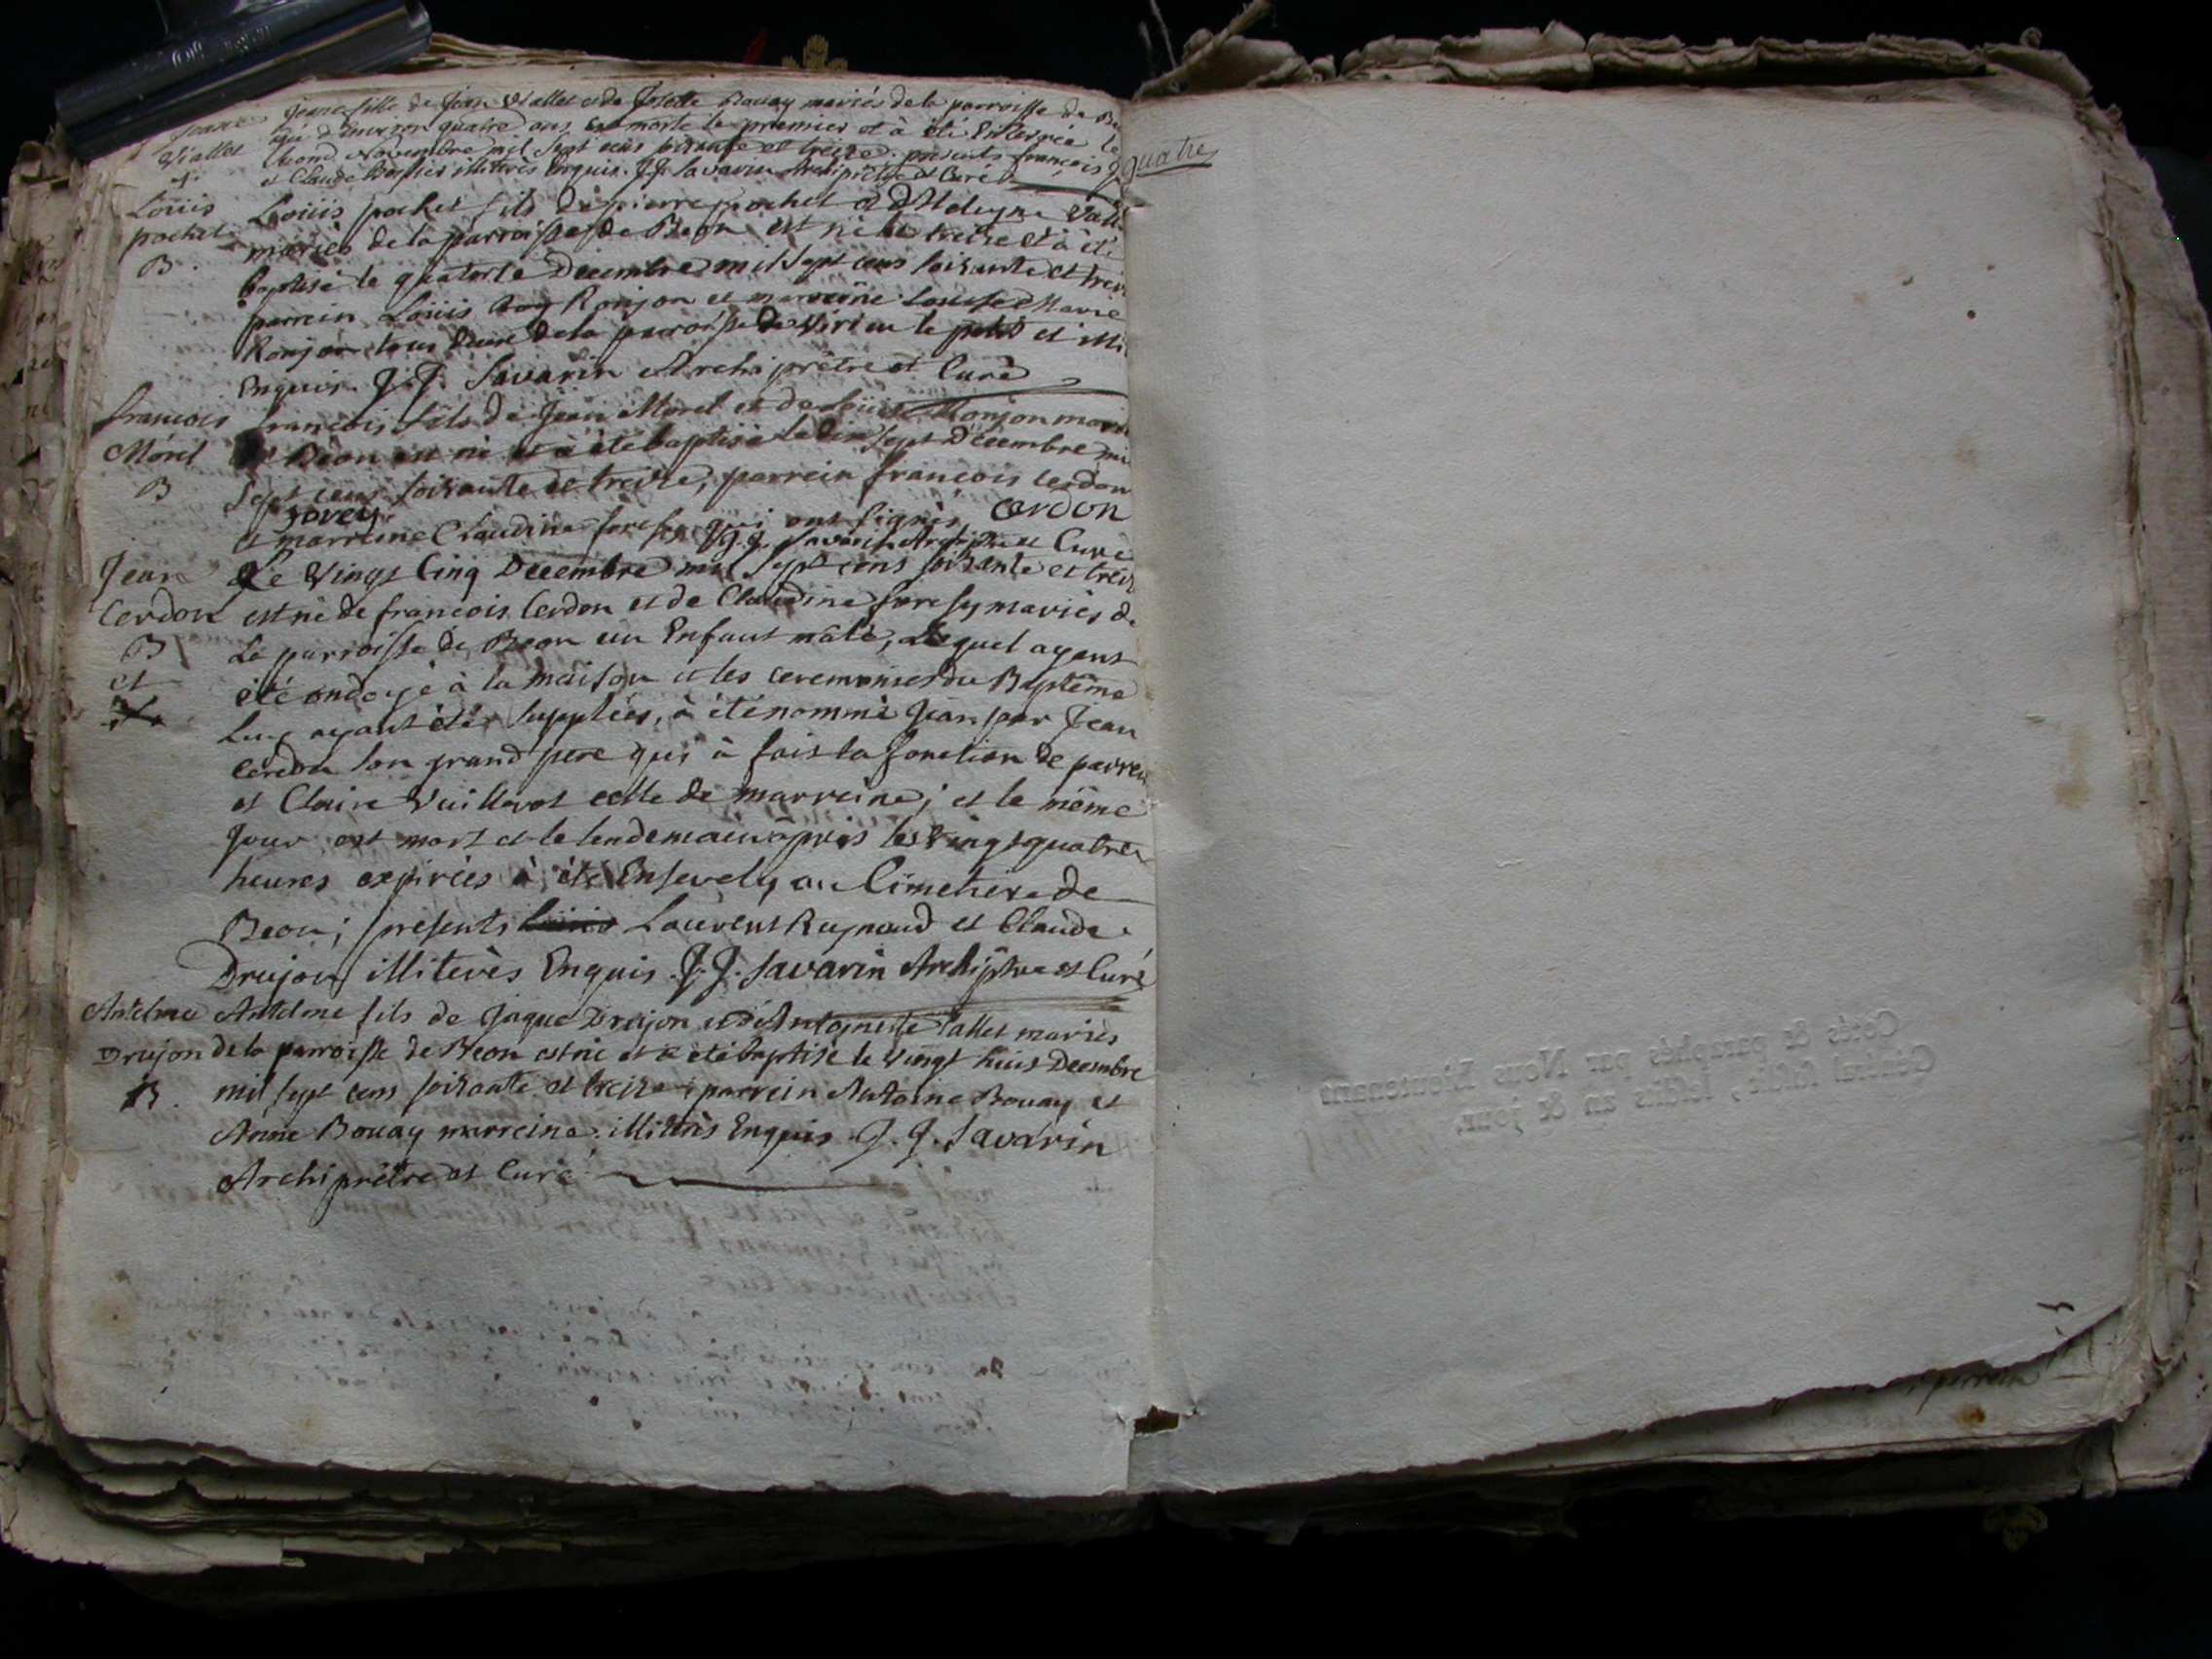 Jeane Jeane fille de Jean Viallet et de Josette Bouay mariés de la parroisse de Be
Viallet agé d'Environ quatre ans est morte le premier et à été Enterrée le
+ second Novembre mil sept cens soixante et treize. presents françois
et Claude illiterès Enquis. J.J. Savarin Archiprêtre et Curé
quatre
Loüis Loüis pochet fils de pierre pochet et d'
pochet mariès de la parroisse de Beon est né le treize et à été
B. baptisé le quatorze Decembre mil sept cens soixante et trei
parrein Loüis Ronjon et marreine Louise Marie
Ronjon tous deux de la parroisse de Virieu le petit et illi
Enquis. J.J. Savarin Archiprêtre et Curé
francois francois fils de Jean Morel et de Monjon mari
Mórel de Béon est né et à été baptisé le dix sept Décembre mi
B sept cens soixante et treize, parrein francois Cerdon
jorcy Cerdon
et marreine Claudine qui ont signès, J.J. Savarin Archiptre et Curé
Jean Le Vingt Cinq Decembre mil sept cens soixante et trei
Cerdon est né de francois Cerdon et de Claudine mariès de
B La parroisse de Beon un Enfant mâle, Lequel ayant
et été ondoyé à la maison et les ceremonies du Baptême
+ Luy ayant étés suppléés, à été nommé Jean par Jean
Cerdon son grand pere qui à fait la fonction de parrein
et Claire Vuillerot celle de marreine; et le même
jour est mort et le lendemain après les vingt quatre
heures expirées à été Ensevely au Cimetiere de
Beon; presents Laurent Raynaud et Claude
Drujon illiterès Enquis. J.J. Savarin Archiptre et Curé
Antelme Antelme fils de Jaque Drujon et d'Antoinette Vallet mariès
Drujon de la parroisse de Beon est né et a été baptisé le vingt huit Decembre
B. mil sept cens soixante et treize parrein Antoine Bouay et
Anne Bouay marreine. illiterès Enquis. J.J. Savarin
Archiprêtre et Curé
Cotés & paraphés par Nous Lieutenant
Général susdit, lesdits an & jour.